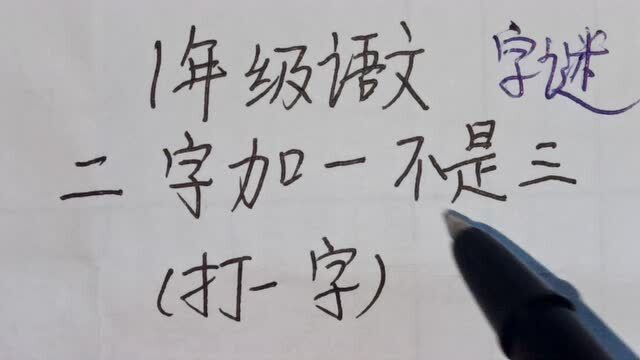 1年级语文 字谜
二字加一不是三
(打一字)